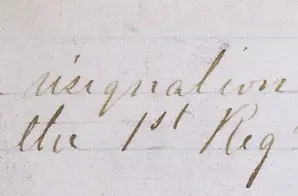 resignation
the 1st Reg'